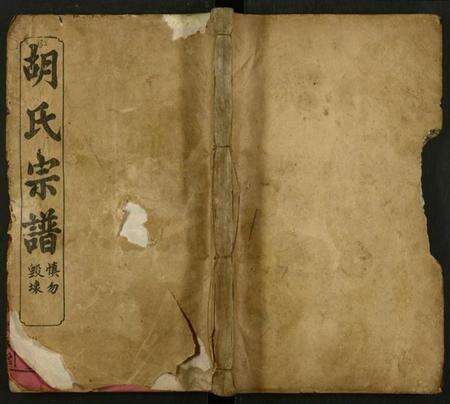 胡氏宗譜
慎勿
毀壞